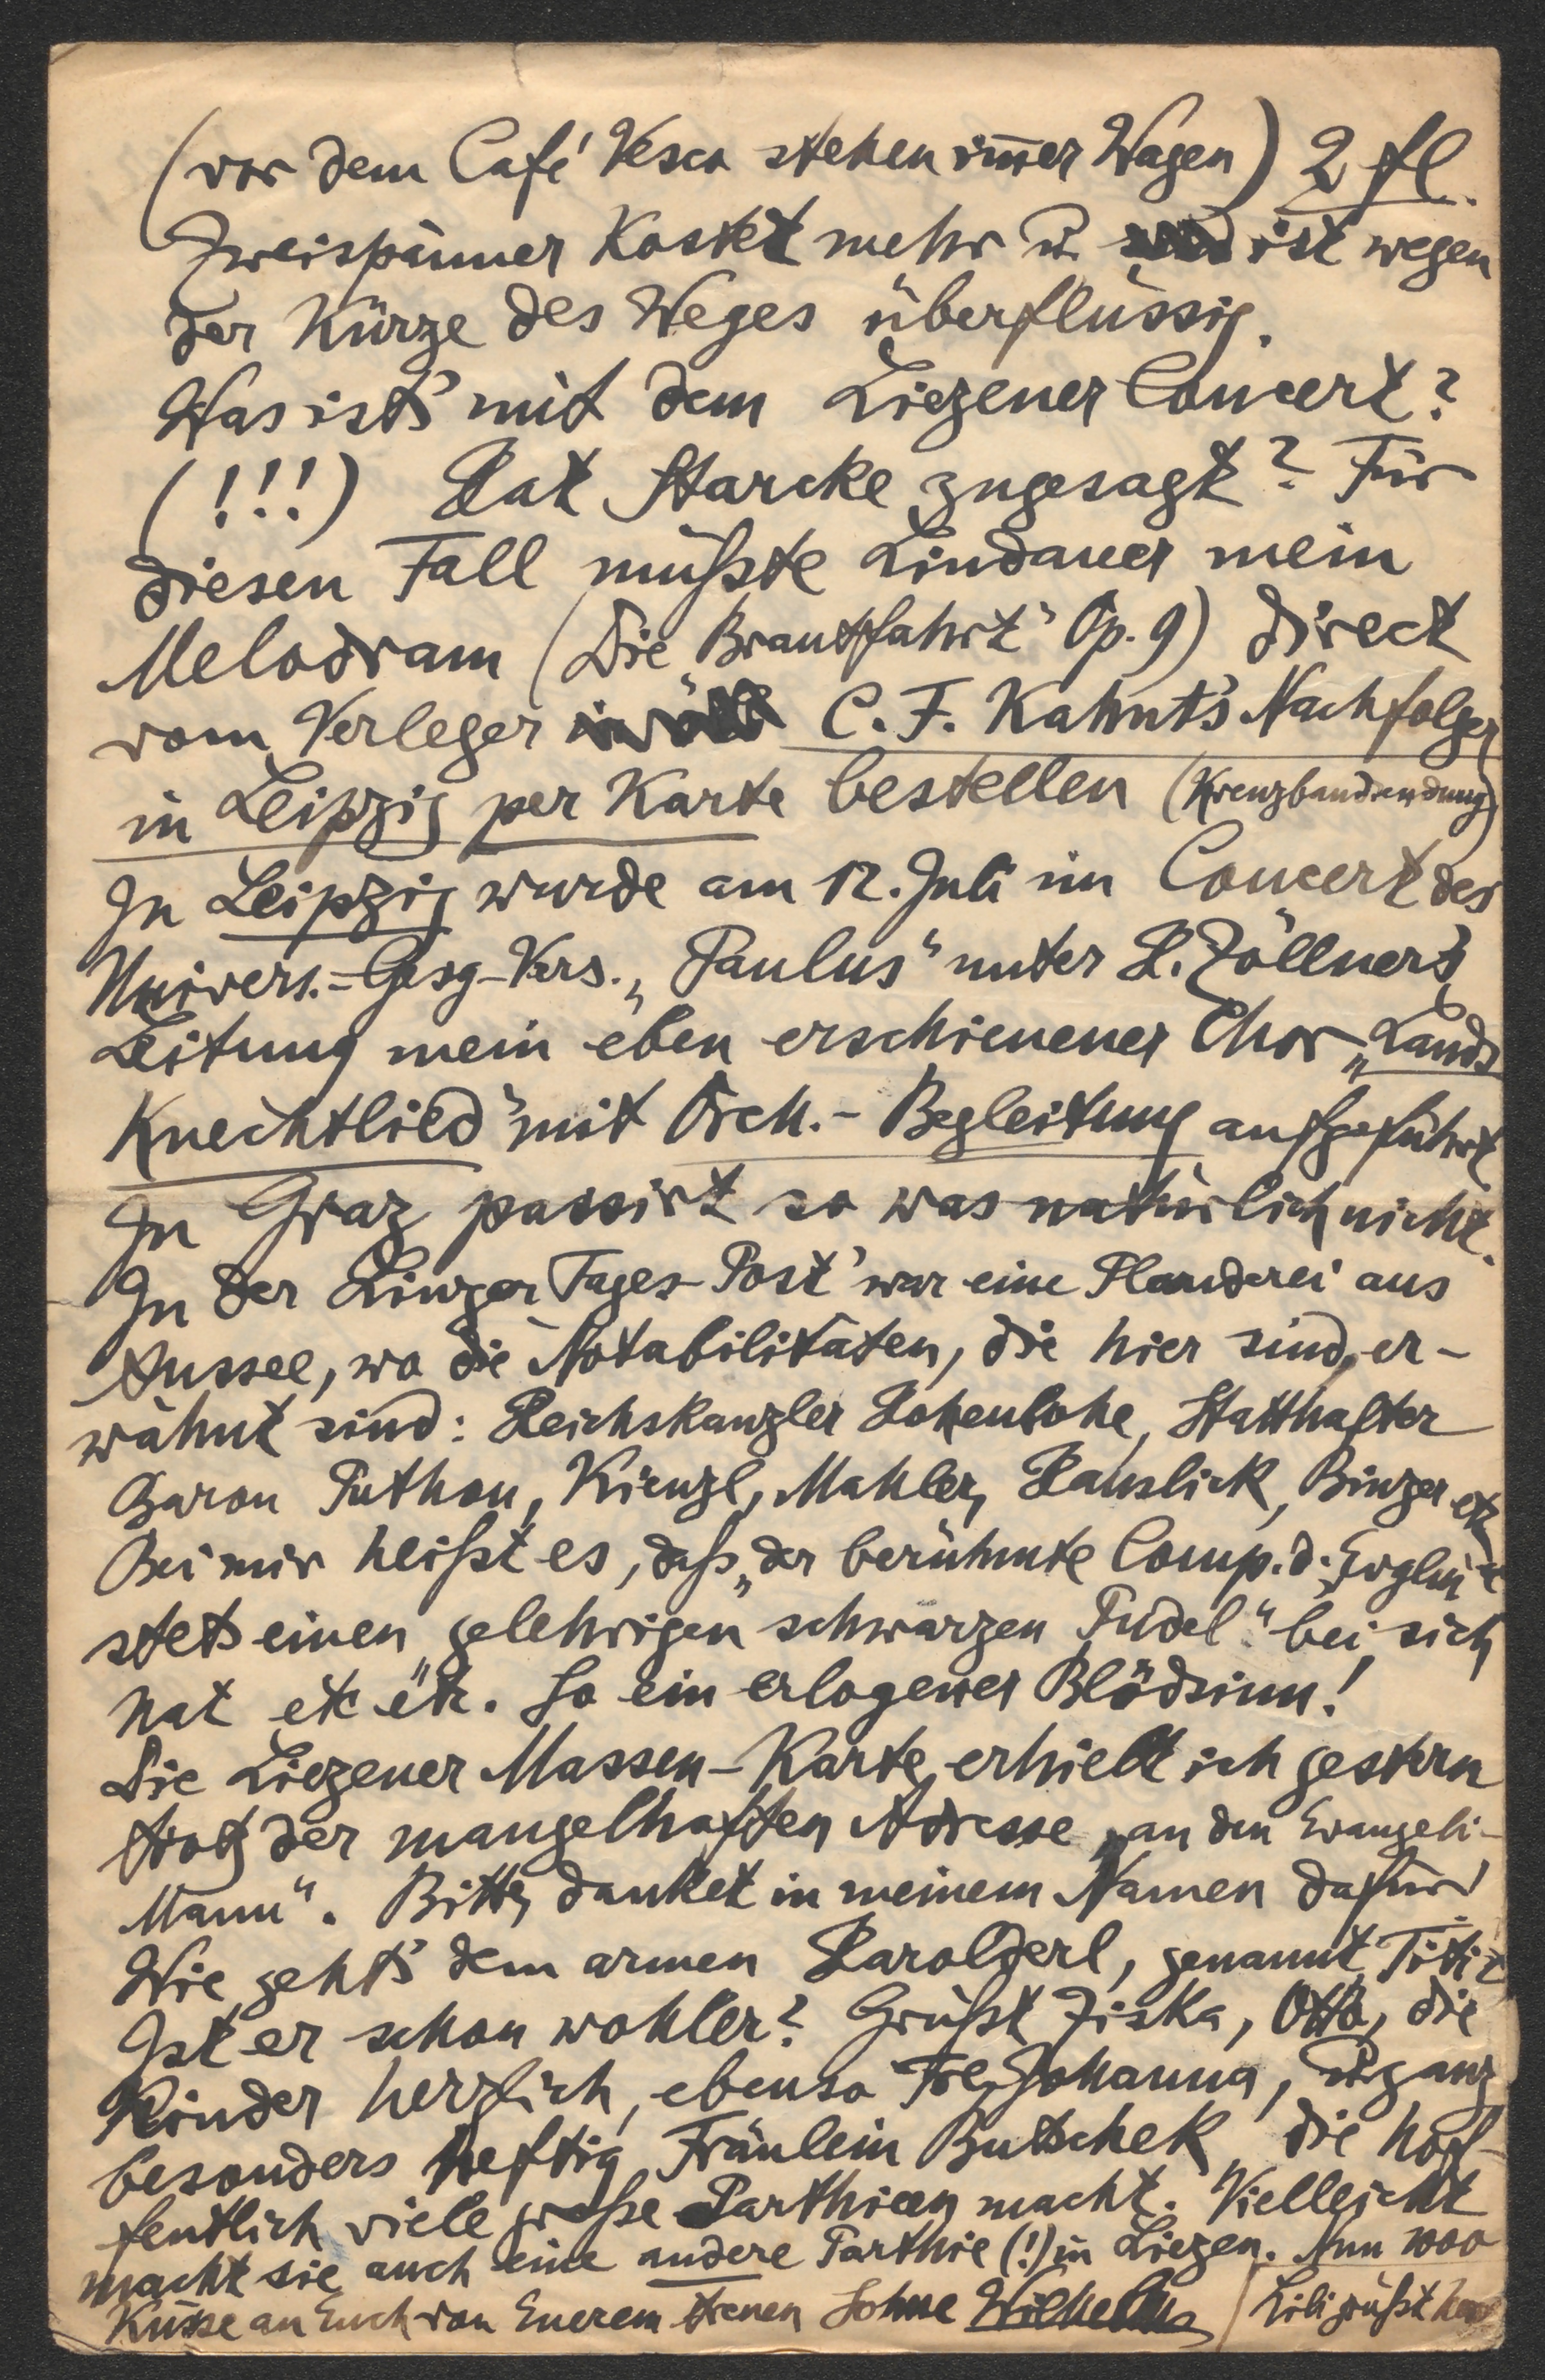 (vor dem Café Vesco stehen im̄er Wagen) 2 fl.
Zweispänner kostet mehr u. ist wegen
der Kürze des Weges überflüssig.
Was ist's mit dem Liezener Concert?
(!!!) Hat Starcke zugesagt? Für
diesen Fall müßte Lindauer mein
Melodram (Die „Brautfahrt" Op. 9) direct
vom Verleger C. F. Kahnt's Nachfolger
in Leipzig per Karte bestellen (Kreuzbandsendung)
In Leipzig wurde am 12. Juli im Concert des
Univers.-Gesg-Vers. „Paulus" unter H. Zöllner's
Leitung mein eben erschienener Chor „Lands
Knechtlied" mit Orch.-Begleitung aufgeführt
In Graz passirt so was natürlich nicht.
In der Linzer Tages-Post' war eine Plauderei aus
Aussee, wo die Notabilitäten, die hier sind, er-
wähnt sind: Reichskanzler Hohenlohe, Statthalter
Baron Puthon, Kienzl, Mahler, Hanslick, Binzer etc
Bei mir heißt es, daß „der berühmte Comp. d.
stets einen „gelehrigen schwarzen Pudel" bei sich
hat etc etc. So ein erlogener Blödsinn!
Die Liezener Massen-Karte erhielt ich gestern
trotz der mangelhaften Adresse „an den Evangeli-
Mann". Bitte, danket in meinem Namen dafür
Wie geht's dem armen Harolderl, genannt
Ist er schon wohler? Grüßt Ziska, Otto, die
Kinder herzlich, ebenso Frl. Johanna, ganz
besonders heftig Fräulein Butschek, die hof-
fentlich viele große Parthieen macht. Vielleicht
macht sie auch eine andere Parthie (!) in Liezen. Nun 1000
Küsse an Euch von Euerem treuen Sohne Wilhelm / Lili grüßt